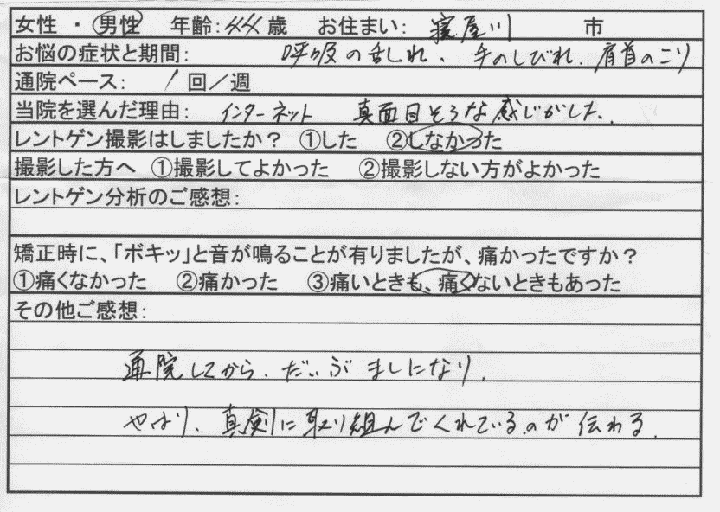 女性 ・ 男性 年齢: 44 歳 お住まい: 寝屋川 市
お悩の症状と期間: 呼吸の乱れ、手のしびれ、肩首のこり
通院ペース: 1 回／週
当院を選んだ理由: インターネット 真面目そうな感じがした。
レントゲン撮影はしましたか？ ①した ②しなかった
撮影した方へ ①撮影してよかった ②撮影しない方がよかった
レントゲン分析のご感想:
矯正時に、「ボキッ」と音が鳴ることが有りましたが、痛かったですか？
①痛くなかった ②痛かった ③痛いときも、痛くないときもあった
その他ご感想:
通院してから、だいぶましになり、
やはり、真剣に取り組んでくれているのが伝わる。